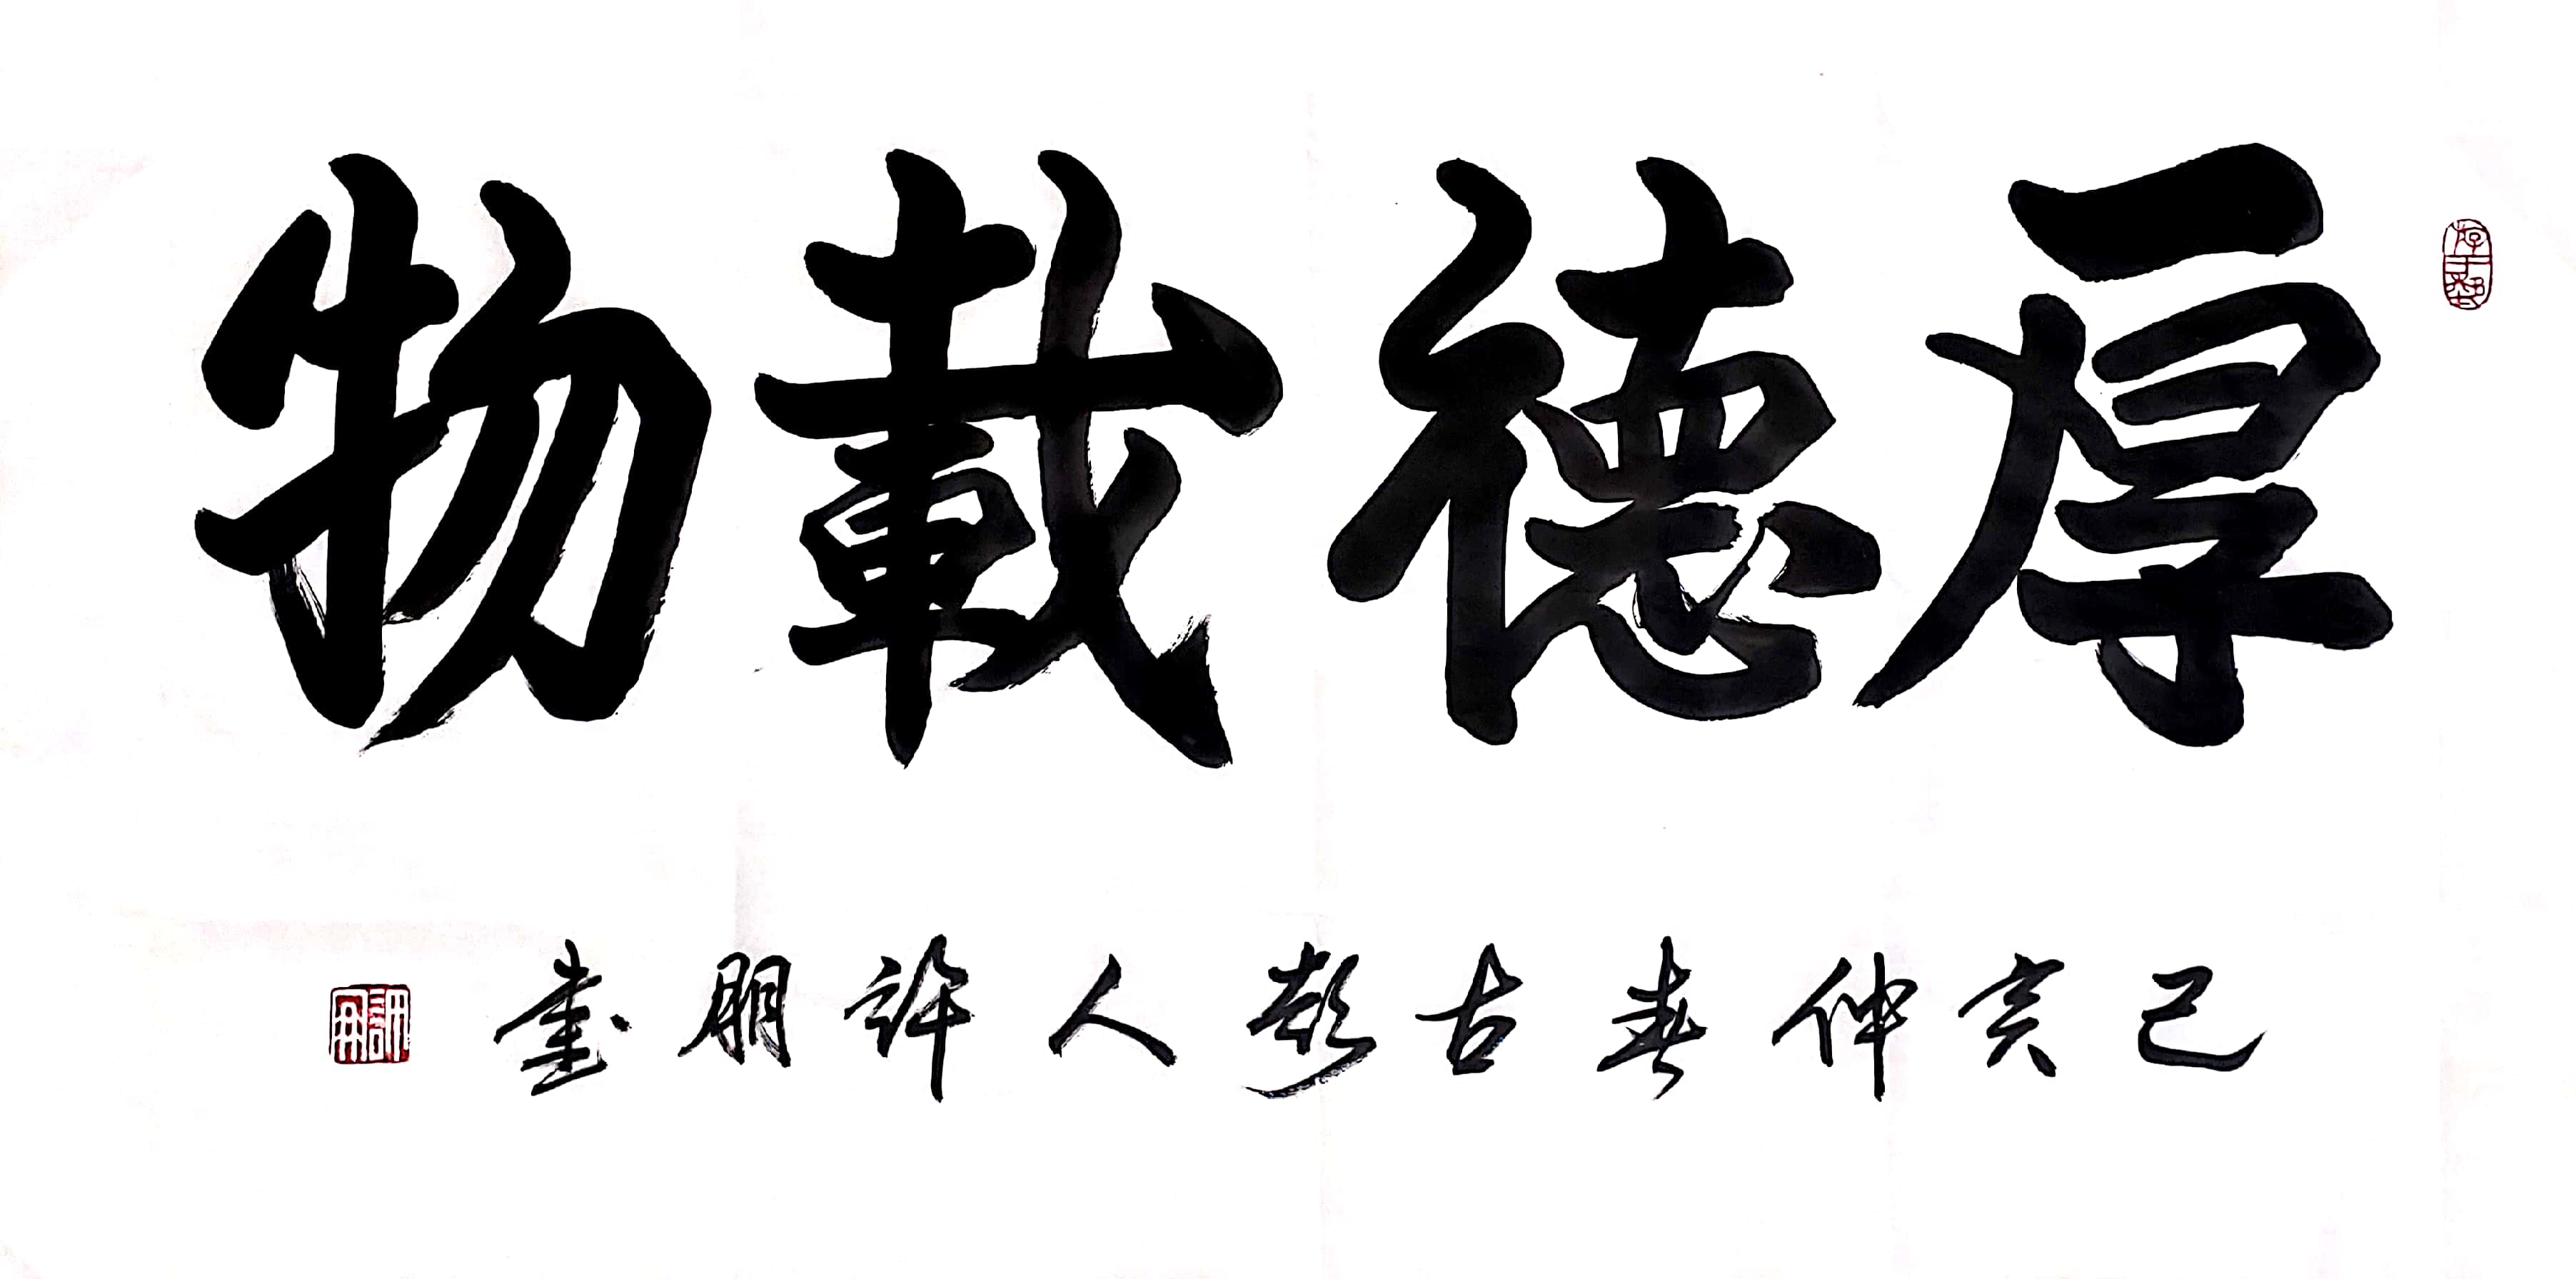 厚德載物
己亥仲春古彭人許朋書